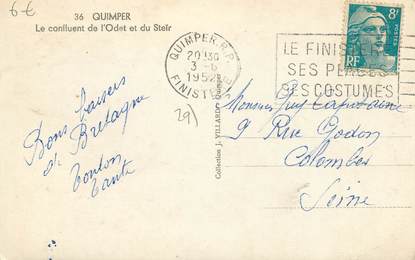 6€
36 QUIMPER
Le confluent de l'Odet et du Steïr
QUIMPER R.P.
20H30
3-6
1952
FINISTERE
8F
POSTES
RF
LE FINISTERE
SES PLAGES
SES COSTUMES
29)
Bons baisers
de Bretagne
tonton
tante
Collection J. VILLARD, Quimper
Monsieur Guy
9 Rue Godon
Colombes
Seine